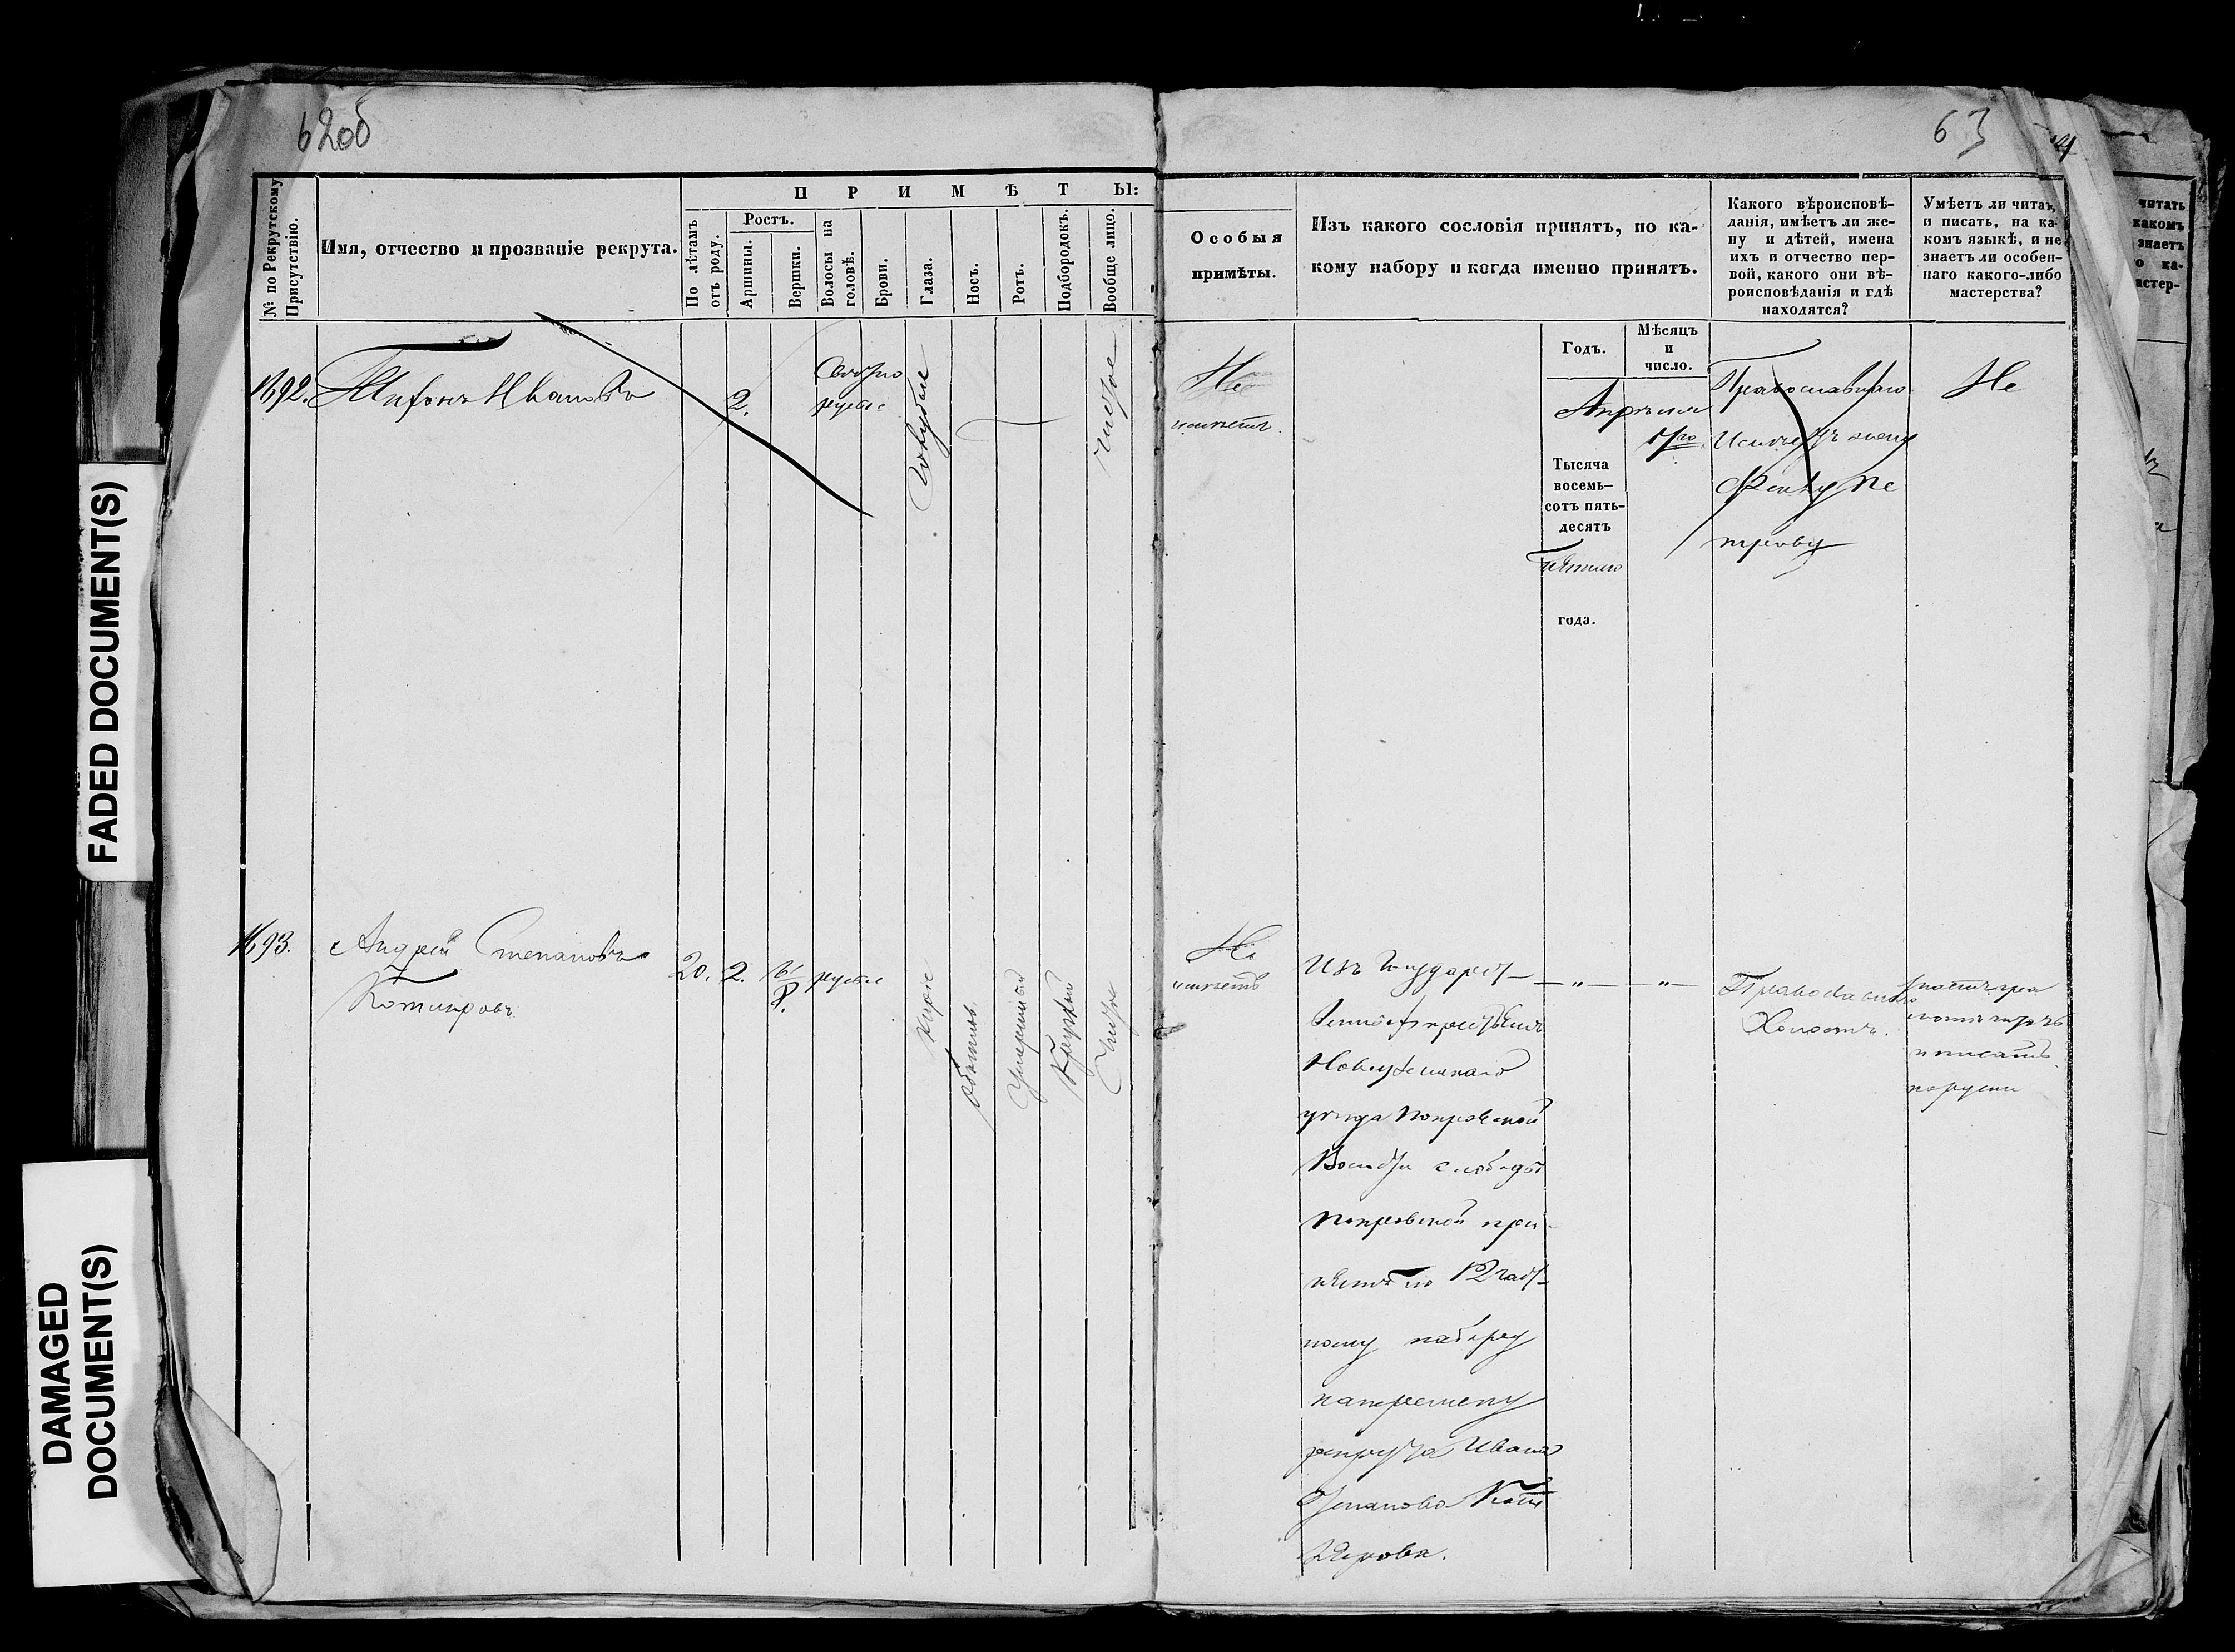 62об
63
FADED DOCUMENT(S)
DAMAGED
DOCUMENT(S)
№ по Рекрутскому
Присутствію.
Имя, отчество и прозваніе рекрута.
ПРИМѢТЫ:
По лѣтамъ
отъ роду.
Ростъ.
Аршины.
Вершки.
Волосы на
головѣ.
Брови.
Глаза.
Носъ.
Ротъ.
Подбородокъ.
Вообще лицо.
Особыя
примѣты.
Изъ какого сословія принятъ, по ка-
кому набору и когда именно принятъ.
Какого вѣроисповѣ-
данія, имѣетъ ли же-
ну и дѣтей, имена
ихъ и отчество пер-
вой, какого они вѣ-
роисповѣданія и гдѣ
находятся?
Умѣетъ ли читать,
и писать, на ка-
комъ языкѣ, и не
знаетъ ли особен-
наго какого-либо
мастерства?
читать
какомъ
знаетъ
о ка-
астер-
Годъ.
Мѣсяцъ
и
число.
1692.
Ивановъ
2.
Свѣтло
русые
Голубые
Чистое
Не
имѣетъ.
Апрѣля
Тысяча
восемь-
сотъ пять-
десятъ
пятаго
года.
Православнаго
имѣетъ жену
Феклу Пе
трову
Не
1693.
Андрей Степановъ
Котляровъ
20.
2.
русые
Каріе
Умѣренный
Круглый
Чистое
Не
имѣетъ
Изъ Государст-
венныхъ крестьянъ
Новоузенскаго
уѣзда Покровской
Волости слободы
Покровской при-
нятъ по 12 част-
ному набору
на перемену
рекрута Ивана
Степанова Котл
ярова.
— „ — — „ —
Православнаго
Холостъ.
знаетъ гра
моте читать
и писать
по русски